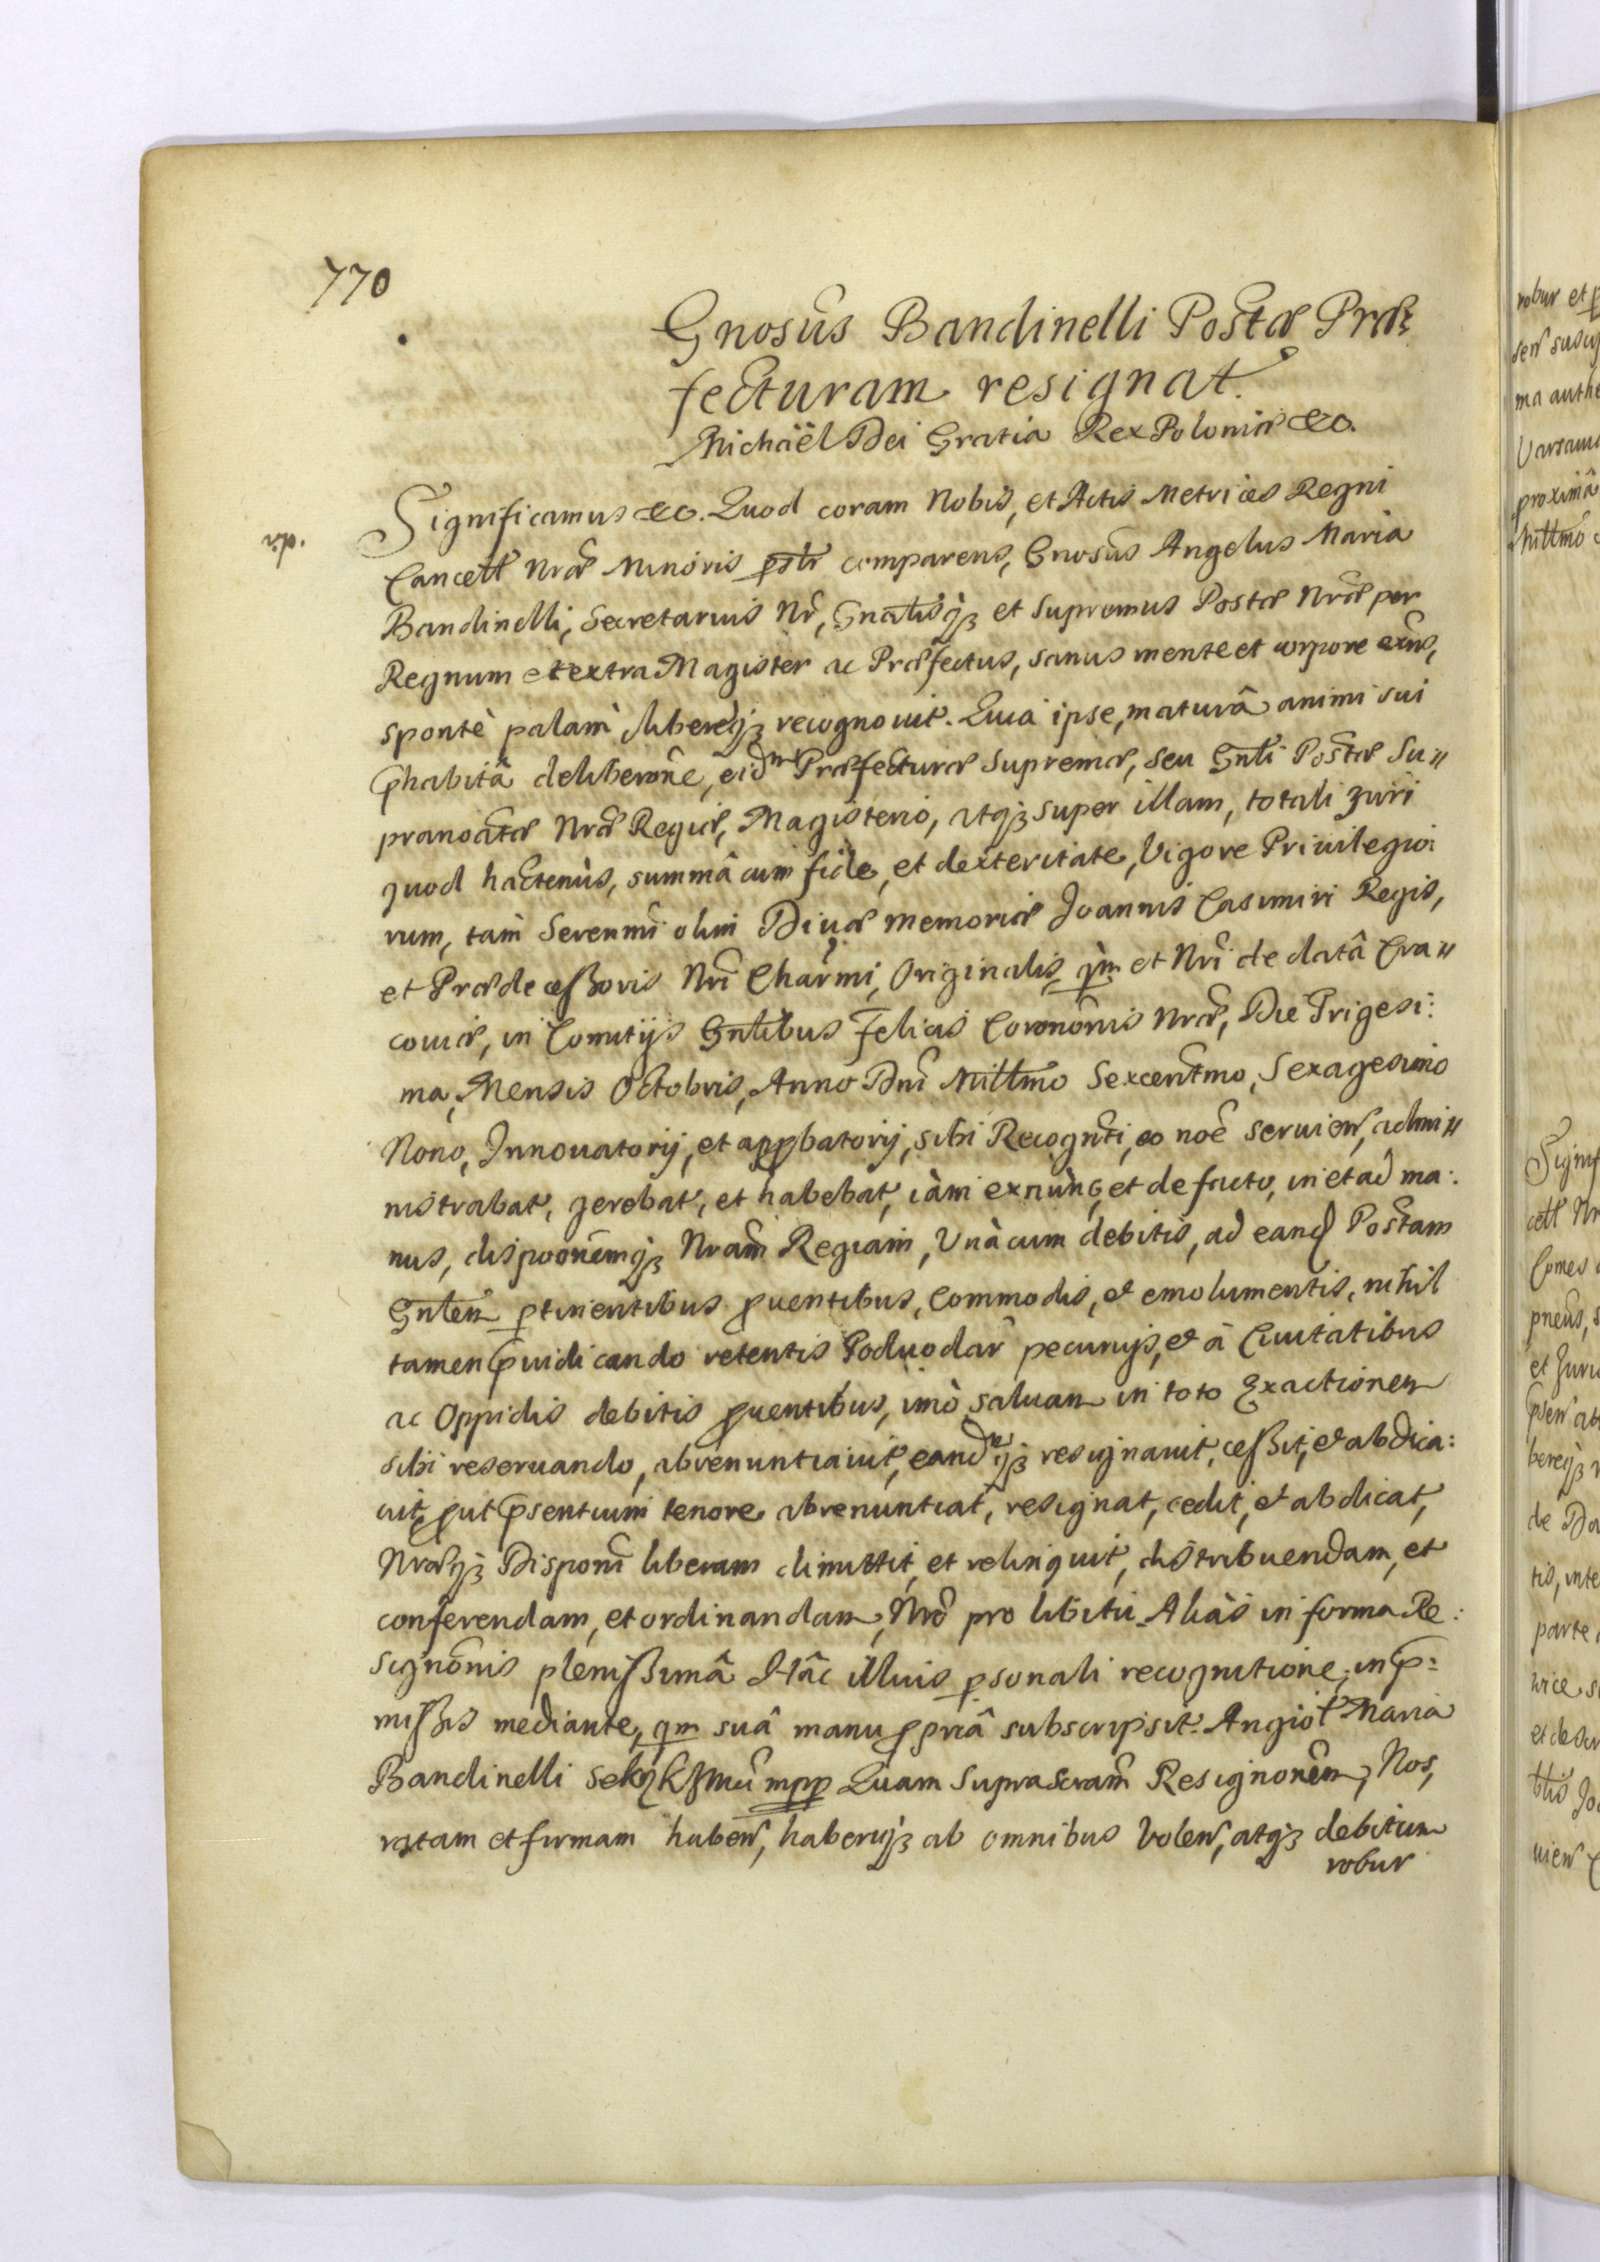 770
Gnosus Bandinelli Postæ Præ:
fecturam resignat.
Michaël Dei Gratia Rex Poloniæ &c.
Significamus &c. Quod coram Nobis, et Actis Metrices Regni
Cancell Nræ Minoris psltr comparens, Gnosus Angelus Maria
Bandinelli, Secretarius Nr, Gnalisq3 et Supremus Postæ Nræ per
Regnum et extra Magister ac Præfectus, sanus mente et corpore exns,
spontè palam libereq3 recognovit. Quia ipse, maturâ animi sui
phabitâ deliberone, eidm Præfecturæ Supremæ, seu Gnli Postæ Su//
pranoatæ Nræ Regiæ, Magisterio, atq3 super illam, totali Juri
quod hactenùs, summâ cum fide, et dexteritate, Vigore Privilegio:
rum, tàm Serenmi olim Divæ memoriæ Joannis Casimiri Regis,
et Prædecessoris Nri Charmi, Originalis, qm et Nri de datâ Cra//
coviæ, in Comitijs Gnlibus Felicis Coronõnis Nræ, Die Trigesi:
ma, Mensis Octobris, Anno Dni Millmo Sexcentmo, Sexagesimo
Nono, Innovatorij, et appbatorij, sibi Recognti, eo noe servien, admi//
nistrabat, gerebat, et habebat, iàm exnùnc, et de facto, in et ad ma:
nus, dispoonemq3 Nram Regiam, Unà cum debitis, ad eand Postam
Gnlem ptinentibus pventibus, Commodis, et emolumentis, nihil
tamen pvidicando retentis Podvodar pecunijs, et à Civitatibus
ac Oppidis debitis pventibus, imò salvam in toto Exactionem
sibi reservando, abrenuntiavit, eandmq3 resignavit, cessit, et abdica:
vit, put psentium tenore abrenuntiat, resignat, cedit, et abdicat,
Nræq3 Disponi liberam dimittit, et relinquit, distribuendam, et
conferendam, et ordinandam, Nro pro libitu. Aliàs in forma Re:
signonis plenissimâ Hâc illius psonali recognitione, in p:
missis mediante, qm suâ manu ppriâ subscripsit. Angiol Maria
Bandinelli mpp Quam Suprascram Resignonem, Nos,
ratam et firmam haben, haberiq3 ab omnibus Volen, atq3 debitum
robur